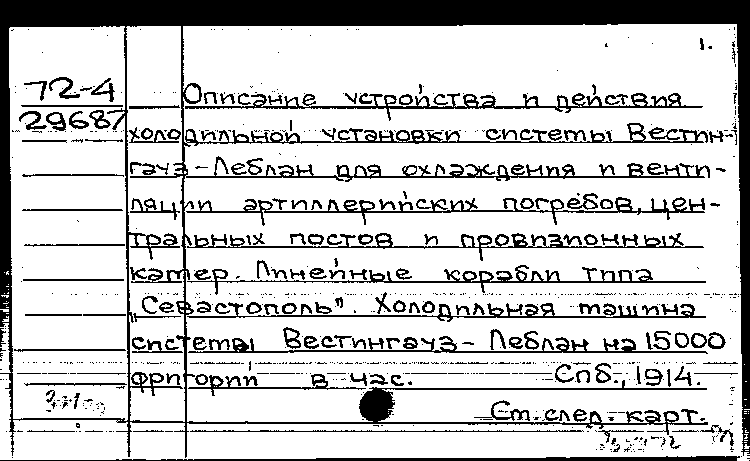 1.
72-4
29687
Описание устройства и действия
холодильной установки системы Вестин-
гауз-Леблан для охлаждения и венти-
ляции артиллерийских погребов, цен-
тральных постов и провизионных
камер. Линейные корабли типа
„Севастополь”. Холодильная машина
системы Вестингауз-Леблан на 15000
фригорий в час. Спб., 1914.
См. след. карт.